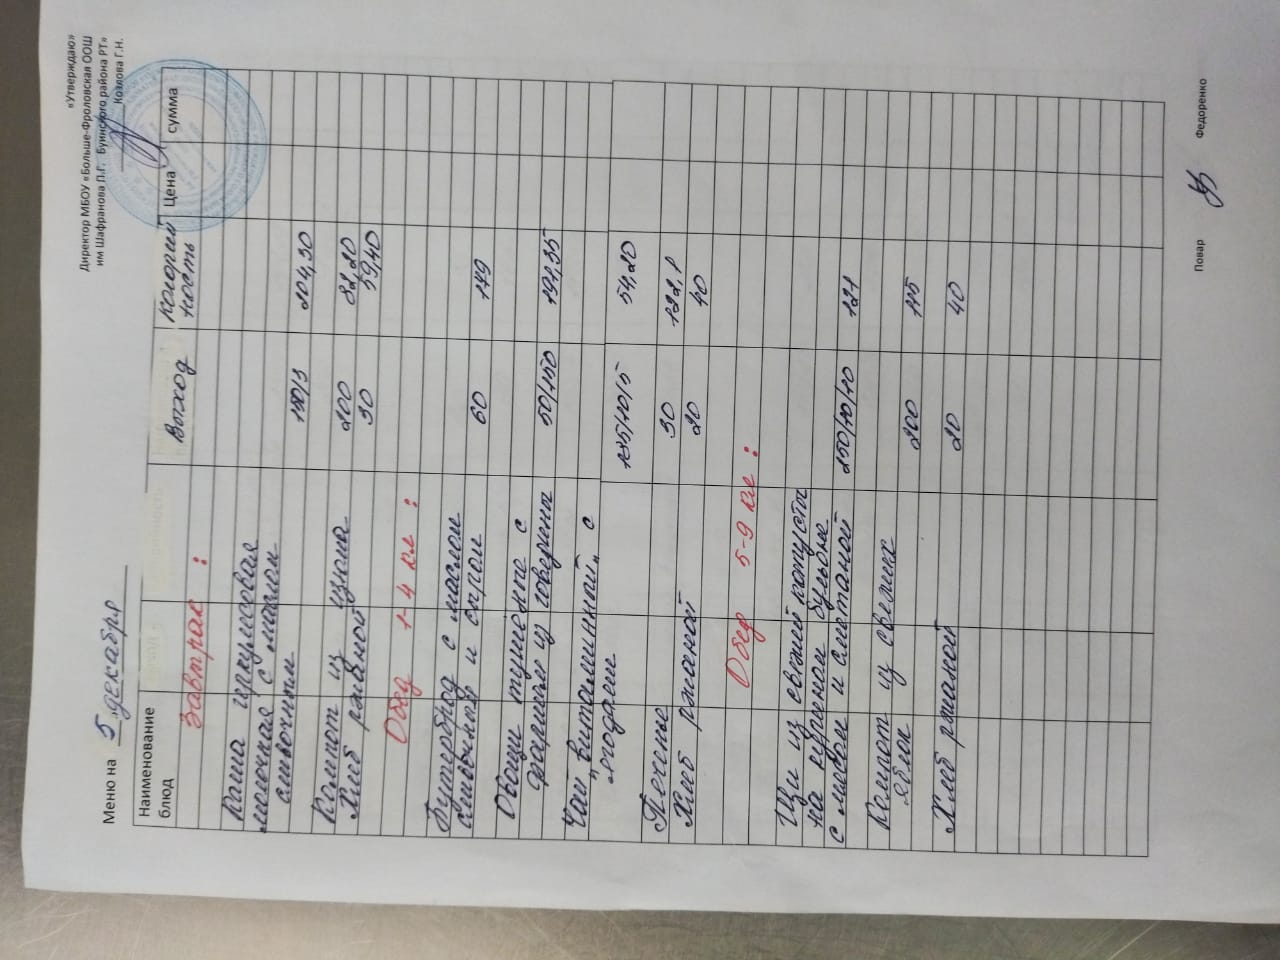 «Утверждаю»
Директор МБОУ «Больше-Фроловская ООШ
им Шафранова П.Г. Буинского района РТ»
Козлова Г.Н.
Меню на 5 декабря
Наименование блюд Выход Калорий Цена сумма
ность
Завтрак :
Каша геркулесовая
молочная с маслом
сливочным 150/5 204,30
Компот из изюма 200 82,20
Хлеб ржаной 30 59,40
Обед 1-4 кл :
Бутерброд с маслом
сливочным и сыром 60 149
Овощи тушеные с
фрикаделями из говядины 50/150 191,35
Чай „витаминный" с
ягодами 195/10/5 54,20
Печенье 30 122,1
Хлеб ржаной 20 40
Обед 5-9 кл :
Щи из свежей капусты
на курином бульоне
с мясом и сметаной 250/10/10 121
Компот из свежих
яблок 200 115
Хлеб ржаной 20 40
Повар Федоренко